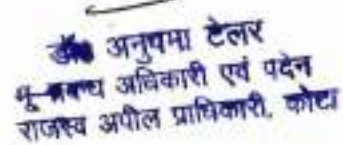 डॉ० अनुपमा टेलर
भू प्रबन्ध अधिकारी एवं पदेन
राजस्व अपील प्राधिकारी, कोटा